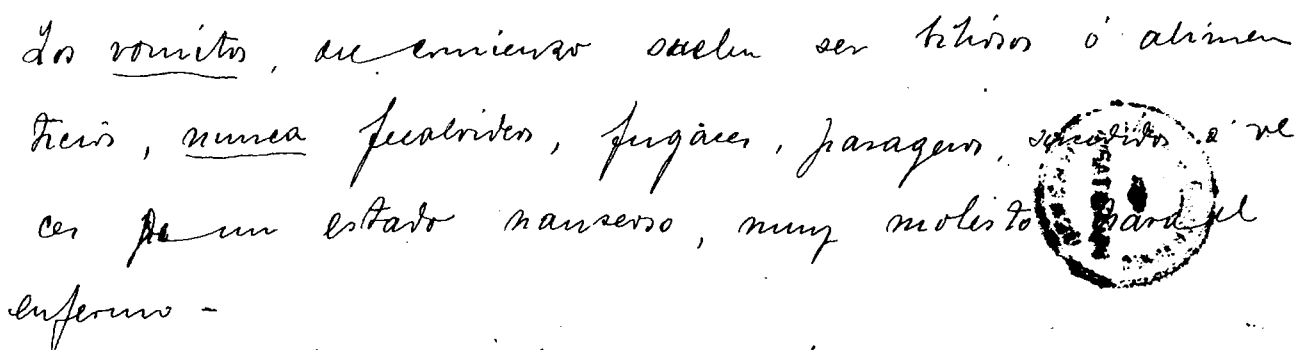 Los vomitos, de comienzo suelen ser biliosos ó alimen
ticios, nunca fecaloideos, fugáces, pasageros, sucedidos á ve
ces de un estado nauseoso, muy molesto para el
enfermo -